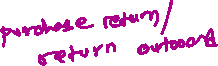 purchase return/
return outward